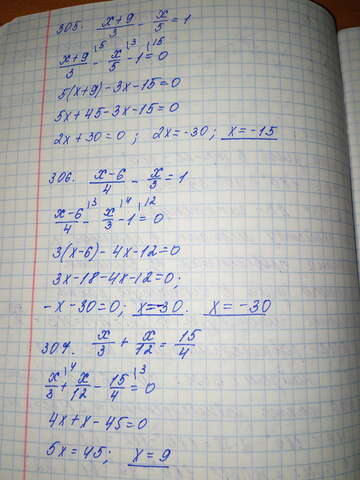 305. (x+9)/3 - x/5 = 1
(x+9)/3 ⁵ - x/5 ³ - 1 ¹⁵ = 0
5(x+9)-3x-15=0
5x+45-3x-15=0
2x+30=0; 2x=-30; x=-15
306. (x-6)/4 - x/3 = 1
(x-6)/4 ³ - x/3 ⁴ - 1 ¹² = 0
3(x-6)-4x-12=0
3x-18-4x-12=0;
-x-30=0; x=-30. x=-30
307. x/3 + x/12 = 15/4
x/3 ⁴ + x/12 - 15/4 ³ = 0
4x+x-45=0
5x=45; x=9